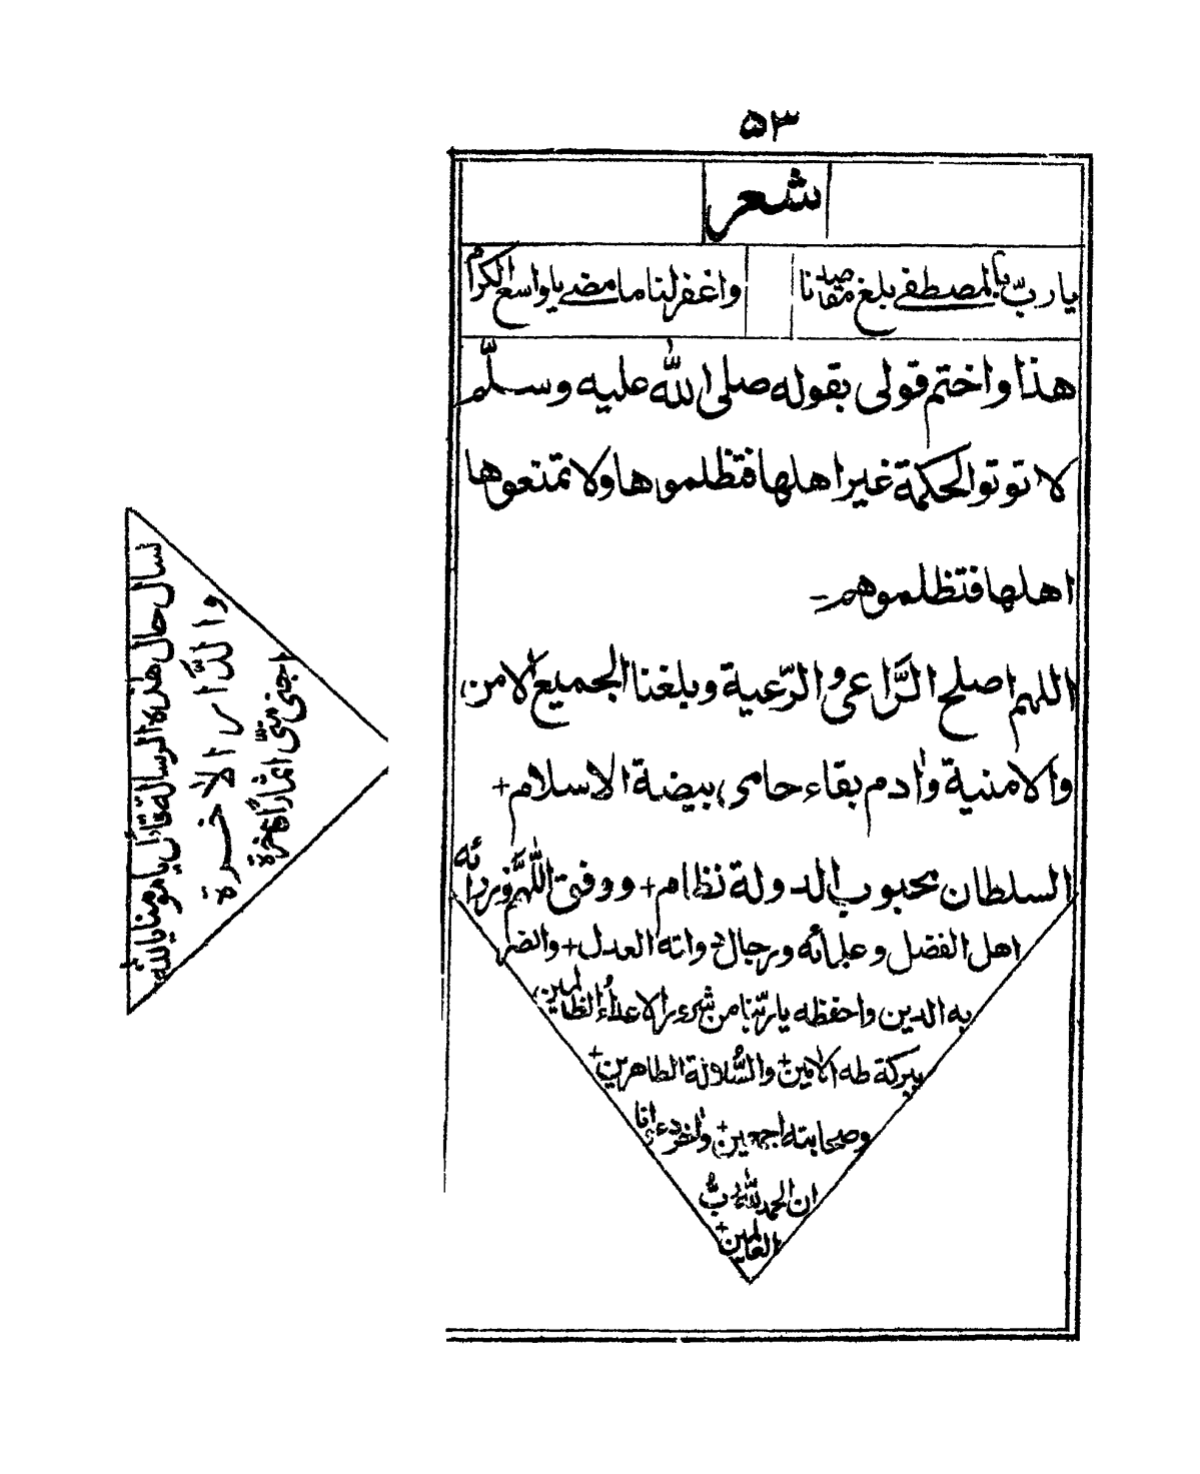 ۵۳
شعر
يا ربّ بالمصطفى بلغ مقاصدنا واغفر لنا ما مضى يا واسع الكرم
هذا واختم قولى بقوله صلى الله عليه وسلّم
لا توتوا الحكمة غير اهلها فتظلموها ولا تمنعوها
اهلها فتظلموهم۔
اللهم اصلح الرَّاعى والرّعية وبلغنا الجميع الامن
والامنية وادم بقاء حامى بيضة الاسلام+
السلطان محبوب الدولة نظام+ ووفق اللّٰهمَّ وزرائه
اهل الفضل وعلمائه ورجال دولته العدل+ وانصر
به الدين واحفظه يا ربّنا من شرور الاعداء الظالمين
ببركة طه الامين+ والسُّلالة الطاهرين+
وصحابته اجمعين+ واٰخر دعوٰنا
ان الحمد لله ربّ
العالمين+
لسان حال هٰذه الرسالة قائل يا مومنا بالله
والدَّار الاخرة
اجنى منّى اثمارًا فاخرة